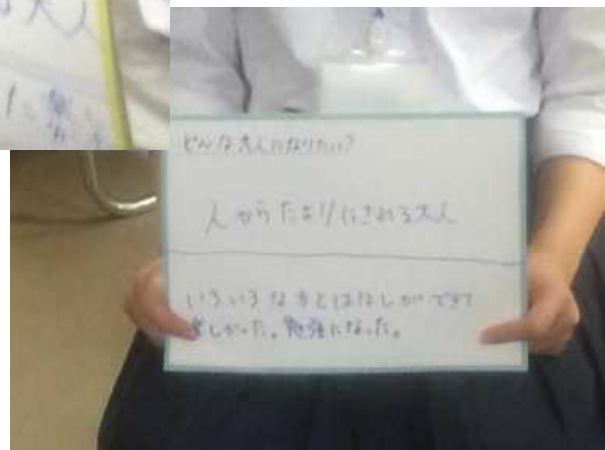 どんな大人になりたい?
人からたよりにされる大人
いろいろな方とはなしができて
楽しかった。勉強になった。
大人